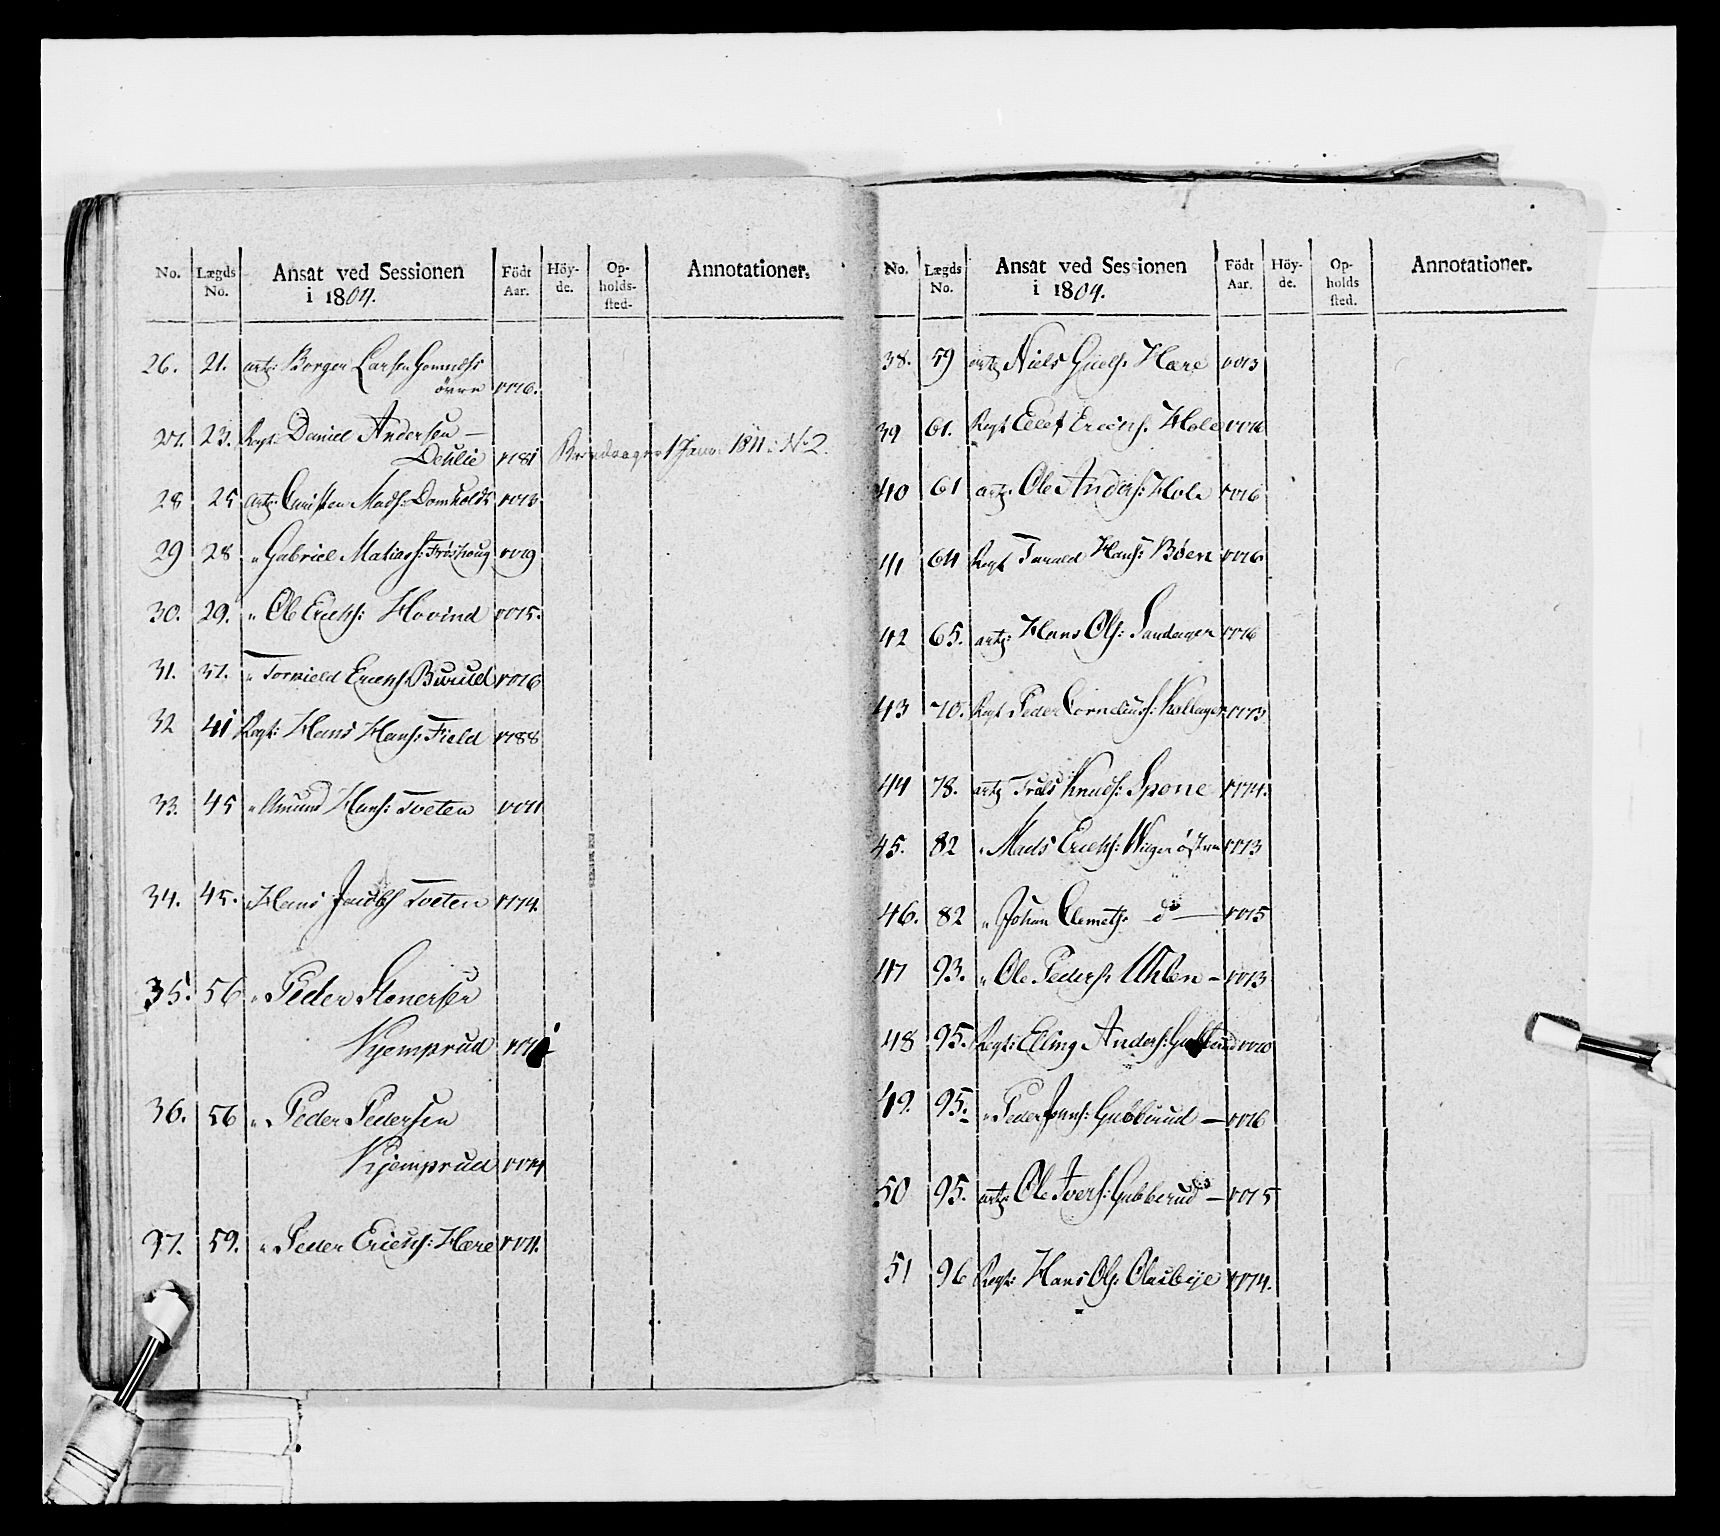 No. Lægds No. Ansat ved Sessionen i 1804. Födt Aar. Höy-de. Op-holds-sted. Annotationer.
26. 21. artz: Borger Larsen
övre 1776.
27. 23. Regt: Daniel Andersen —
Deulie 1781 1 Janv: 1811: No 2.
28 25 artz: Christen Mads: Domholdt
29 28 „ Gabriel Matias: Frøshoug
30. 29. „ Ole Ericks: Hovind 1775.
31. 37. „ Torvield Ericks: Buruld 1776
32 41 Regt: Hans Hans: Field
33. 45 „ Amund Hans: Tveten
34. 45. „ Hans Jacobs Tveten 1774.
35. 56 „ Peder Stenersen
Kjemprud
36. 56 „ Peder Pedersen
Kjemprud 1774
37. 59. „ Peder Ericks: Hære
No. Lægds No. Ansat ved Sessionen i 1804. Födt Aar. Höy-de. Op-holds sted. Annotationer.
38. 59 artz Niels Hære 1773
39 61. Regt Ellef Ericks. Hole
40 61 artz. Ole Anders: Hole 1776
41 64 Regt Hans: Bøen 1776
42 65. artz: Hans Ols: Sandager 1776
43 70. Regt Peder Cornelius: 1773
44 78. artz Knuds: Spone 1774.
45. 82 „ Mads Ericks: Wiger østre 1773
46. 82 „ Johan Clemets. — do — 1775
47 93. „ Ole Peders. Uhlen — 1773
48 95. Regt: Elling Anders: Gubberud
49. 95. „ Peder Jens: Gubberud — 1776
50 95. artz. Ole Ivers: Gubberud — 1775
51 96 Regt: Hans Ols: Olasbye 1774.